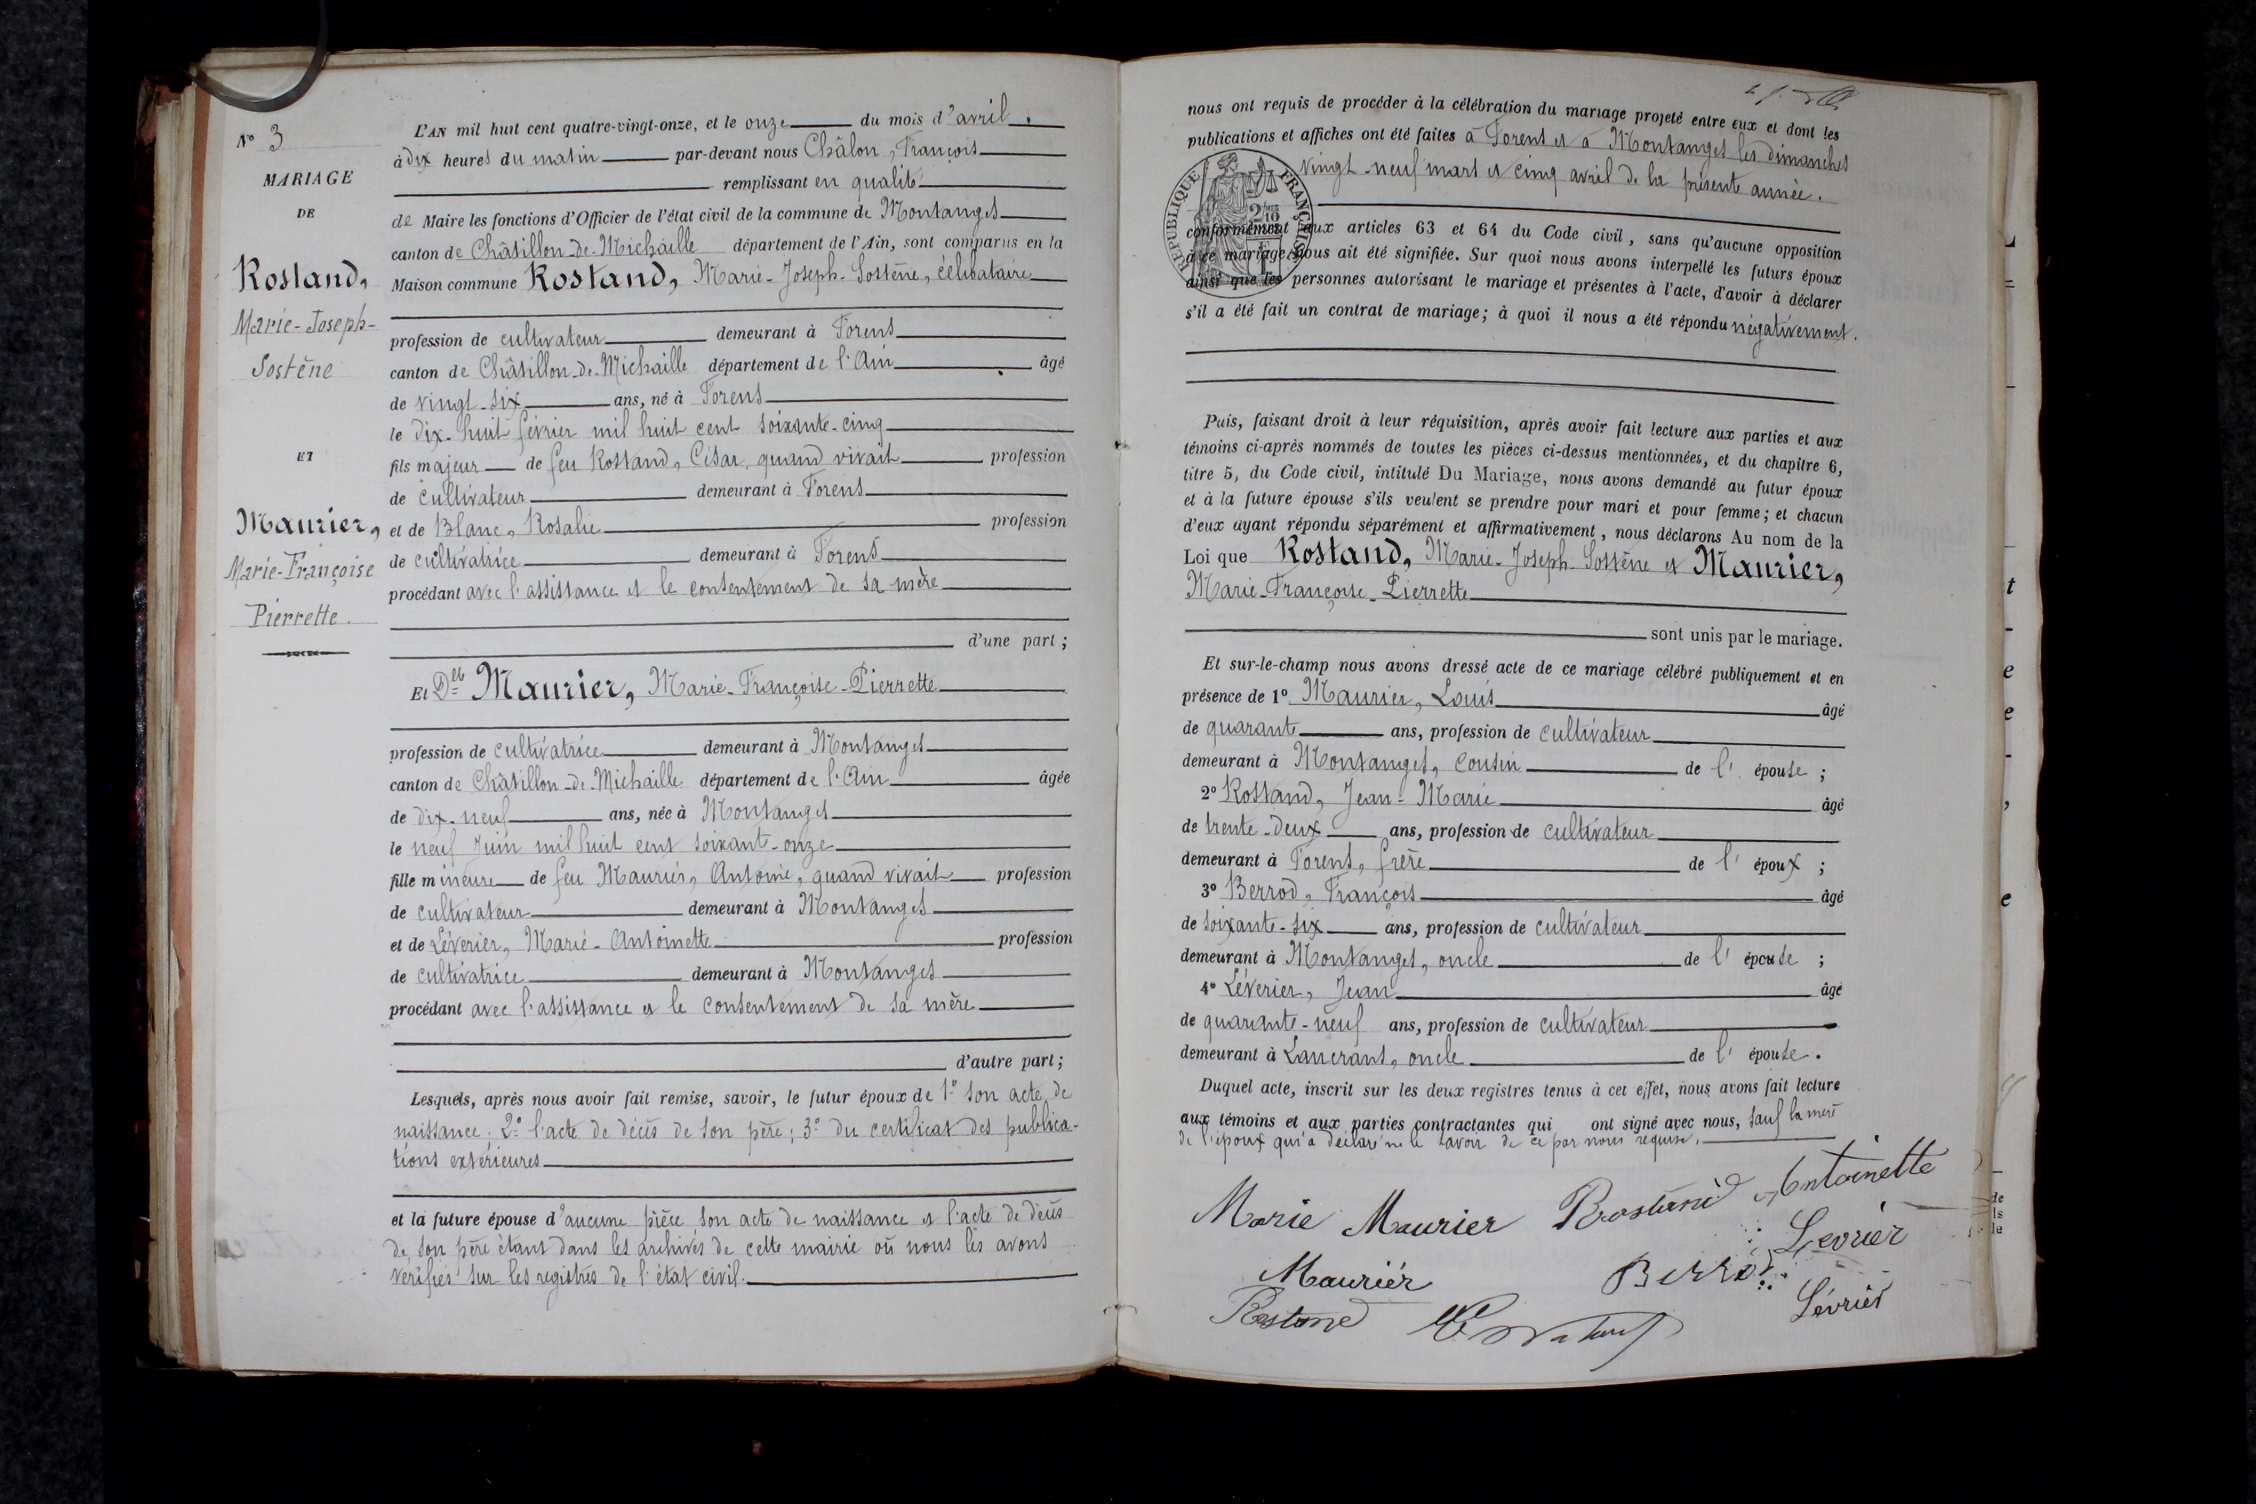 N° 3
MARIAGE
DE
Rostand,
Marie-Joseph-
Sostène
ET
Maurier,
Marie-Françoise
Pierrette.
L'AN mil huit cent quatre-vingt-onze, et le onze du mois d'avril.
à dix heures du matin par-devant nous Châlon, François
remplissant en qualité
de Maire les fonctions d'Officier de l'état civil de la commune de Montanges
canton de Châtillon-de-Michaille département de l'Ain, sont comparus en la
Maison commune Rostand, Marie-Joseph-Sostène, célibataire
profession de cultivateur demeurant à Forens
canton de Châtillon-de-Michaille département de l'Ain âgé
de vingt-six ans, né à Forens
le dix-huit février mil huit cent soixante-cinq
fils majeur de feu Rostand, César, quand vivait profession
de cultivateur demeurant à Forens
et de Blanc, Rosalie profession
de cultivatrice demeurant à Forens
procédant avec l'assistance et le consentement de sa mère
d'une part;
Et Dlle Maurier, Marie-Françoise-Pierrette
profession de cultivatrice demeurant à Montanges
canton de Châtillon-de-Michaille département de l'Ain âgée
de dix-neuf ans, née à Montanges
le neuf Juin mil huit cent soixante-onze
fille mineure de feu Maurier, Antoine, quand vivait profession
de cultivateur demeurant à Montanges
et de Léverier, Marie-Antoinette profession
de cultivatrice demeurant à Montanges
procédant avec l'assistance et le consentement de sa mère
d'autre part;
Lesquels, après nous avoir fait remise, savoir, le futur époux de 1° son acte de
naissance; 2° l'acte de décès de son père; 3° du certificat des publica-
tions extérieures
et la future épouse d'aucune pièce son acte de naissance et l'acte de décès
de son père étant dans les archives de cette mairie où nous les avons
vérifiés sur les registres de l'état civil.
nous ont requis de procéder à la célébration du mariage projeté entre eux et dont les
publications et affiches ont été faites à Forens et à Montanges les dimanches
vingt-neuf mars et cinq avril de la présente année.
RÉPUBLIQUE FRANÇAISE
2/10
conformément aux articles 63 et 64 du Code civil, sans qu'aucune opposition
à ce mariage nous ait été signifiée. Sur quoi nous avons interpellé les futurs époux
ainsi que les personnes autorisant le mariage et présentes à l'acte, d'avoir à déclarer
s'il a été fait un contrat de mariage; à quoi il nous a été répondu négativement.
Puis, faisant droit à leur réquisition, après avoir fait lecture aux parties et aux
témoins ci-après nommés de toutes les pièces ci-dessus mentionnées, et du chapitre 6,
titre 5, du Code civil, intitulé Du Mariage, nous avons demandé au futur époux
et à la future épouse s'ils veulent se prendre pour mari et pour femme; et chacun
d'eux ayant répondu séparément et affirmativement, nous déclarons Au nom de la
Loi que Rostand, Marie-Joseph-Sostène et Maurier,
Marie-Françoise-Pierrette
sont unis par le mariage.
Et sur-le-champ nous avons dressé acte de ce mariage célébré publiquement et en
présence de 1° Maurier, Louis âgé
de quarante ans, profession de cultivateur
demeurant à Montanges, cousin de l'épouse;
2° Rostand, Jean-Marie âgé
de trente-deux ans, profession de cultivateur
demeurant à Forens, frère de l'époux;
3° Berrod, François âgé
de soixante-six ans, profession de cultivateur
demeurant à Montanges, oncle de l'épouse;
4° Léverier, Jean âgé
de quarante-neuf ans, profession de cultivateur
demeurant à Lancrans, oncle de l'épouse.
Duquel acte, inscrit sur les deux registres tenus à cet effet, nous avons fait lecture
aux témoins et aux parties contractantes qui ont signé avec nous, sauf la mère
de l'époux qui a déclaré ne le savoir de ce par nous requise.
Marie Maurier Rostand Antoinette
Levrier
Mauriér Berrod
Rostand Lévrier